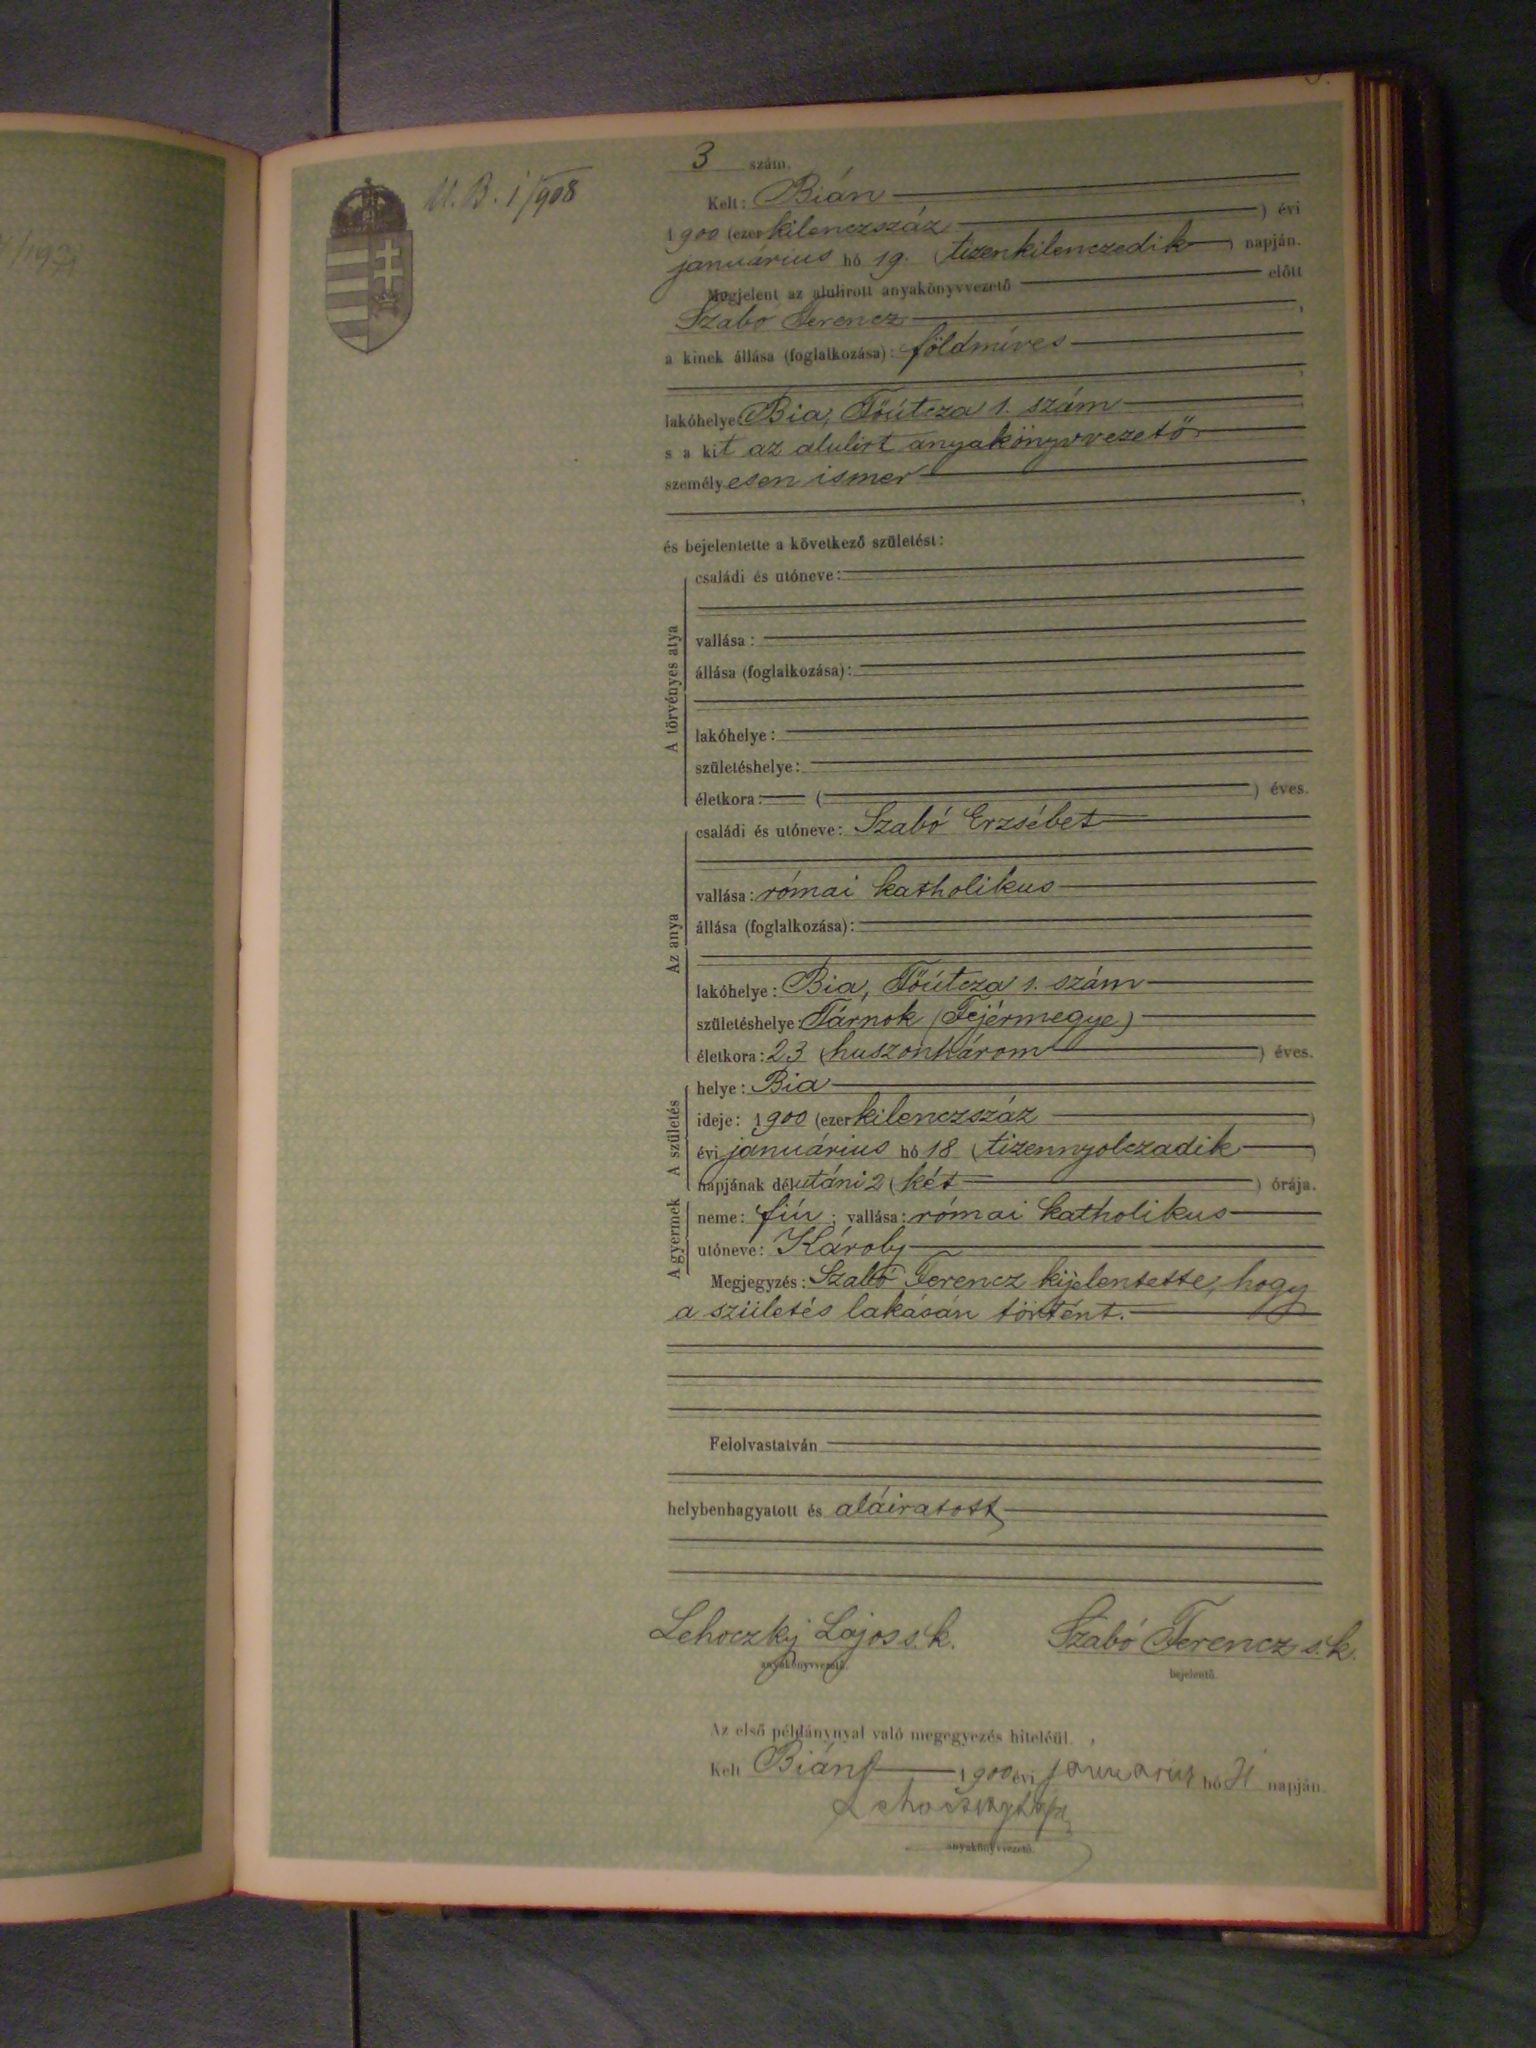 3 szám.
U. B. 1/908
Kelt: Bián
1900 (ezerkilenczszáz) évi
januárius hó 19. (tizenkilenczedik) napján.
Megjelent az alulirott anyakönyvvezető előtt
Szabó Ferencz,
a kinek állása (foglalkozása): földmíves
lakóhelye: Bia, Főútcza 1. szám
s a kit az alulirt anyakönyvvezető
személyesen ismer
és bejelentette a következő születést:
A törvényes atya
családi és utóneve:
vallása:
állása (foglalkozása):
lakóhelye:
születéshelye:
életkora: ( ) éves.
Az anya
családi és utóneve: Szabó Erzsébet
vallása: római katholikus
állása (foglalkozása):
lakóhelye: Bia, Főútcza 1. szám
születéshelye: Tárnok (Fejérmegye)
életkora: 23 (huszonhárom) éves.
A születés
helye: Bia
ideje: 1900 (ezerkilenczszáz)
évi januárius hó 18 (tizennyolczadik)
napjának délutáni 2 (két) órája.
A gyermek
neme: fiú; vallása: római katholikus
utóneve: Károly
Megjegyzés: Szabó Ferencz kijelentette, hogy
a születés lakásán történt.
Felolvastatván
helybenhagyatott és aláiratott
Lehoczky Lajos s. k. Szabó Ferencz s. k.
anyakönyvvezető. bejelentő.
Az első példánynyal való megegyezés hiteléül.
Kelt Bián 1900 évi januárius hó napján.
anyakönyvvezető.